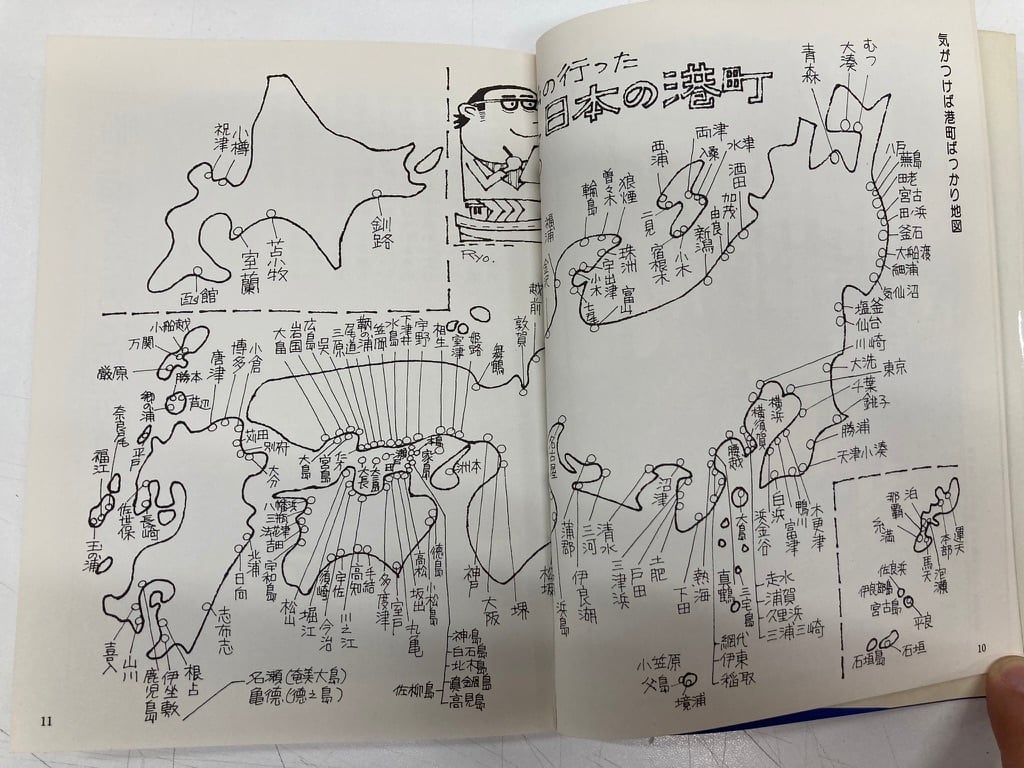 気がつけば港町ばっかり地図
の行った
日本の港町
むつ
大湊
青森
八戸
田老
宮古
釜石
大船渡
細浦
気仙沼
塩釜
仙台
川崎
大洗
東京
千葉
銚子
勝浦
天津小湊
両津
水津
西浦
二見
宿根木
小木
酒田
加茂
由良
新潟
狼煙
曽々木
輪島
珠洲
宇出津
小木
富山
福浦
越前
敦賀
舞鶴
横浜
横須賀
腰越
白浜
浜金谷
鴨川
富津
木更津
大島
三宅島
真鶴
走水
浦賀
久里浜
三浦三崎
熱海
網代
伊東
稲取
下田
土肥
戸田
三津浜
沼津
清水
三河
蒲郡
伊良湖
名古屋
浜島
松坂
小笠原
父島
境浦
泊
那覇
糸満
運天
本部
馬天
佐良浜
伊良部島
宮古島
平良
石垣島
石垣
10
小樽
祝津
釧路
苫小牧
室蘭
函館
Ryo.
小船越
万関
厳原
勝本
郷の浦
芦辺
唐津
博多
小倉
苅田
別府
大分
奈良尾
平戸
福江
佐世保
長崎
玉の浦
大畠
岩国
広島
呉
三原
尾道
鞆の浦
笠岡
水島
下津井
宇野
相生
室津
姫路
大島
宮島
家島
洲本
八幡浜
三瓶
法華津
吉田
宇和島
北浦
日向
志布志
松山
堀江
今治
川之江
須崎
宇佐
高知
手結
多度津
室戸
坂出
高松
丸亀
徳島
小松島
神戸
大阪
堺
神島
白石島
北木島
真鍋島
高見島
佐柳島
喜入
山川
鹿児島
伊座敷
根占
名瀬(奄美大島)
亀徳(徳之島)
11